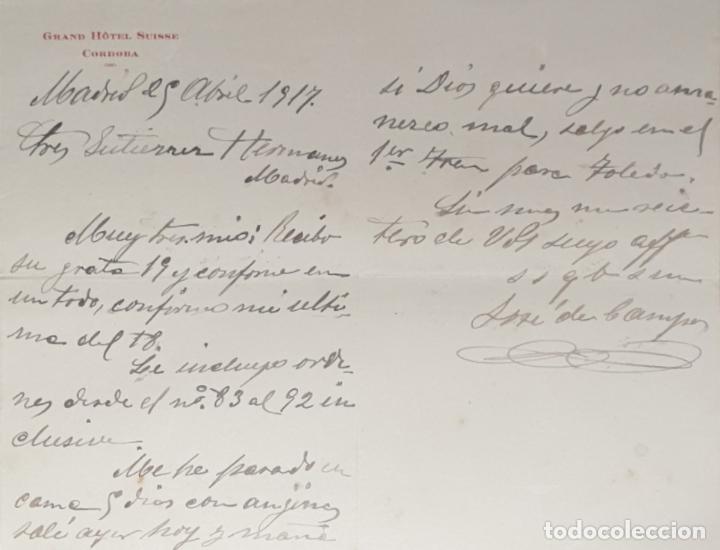 GRAND HÔTEL SUISSE
CORDOBA
Madrid 25 Abril 1917.
Sres Gutierrez Hermanos
Madrid.
Muy Sres. mios: Recibo
su grata 19 y conforme en
un todo, confirmo mi ulti-
ma del 18.
Le incluyo orde-
nes desde el nº. 83 al 92 in
clusive.
Me he pasado en
cama 5 dias con anginas
salí ayer hoy y maña
si Dios quiere y no ama-
nezco mal, salgo en el
1er. tren para Toledo.
Sin mas me reite-
tero de Vds suyo affmo
s s q b s m
José de Campos
todocoleccion